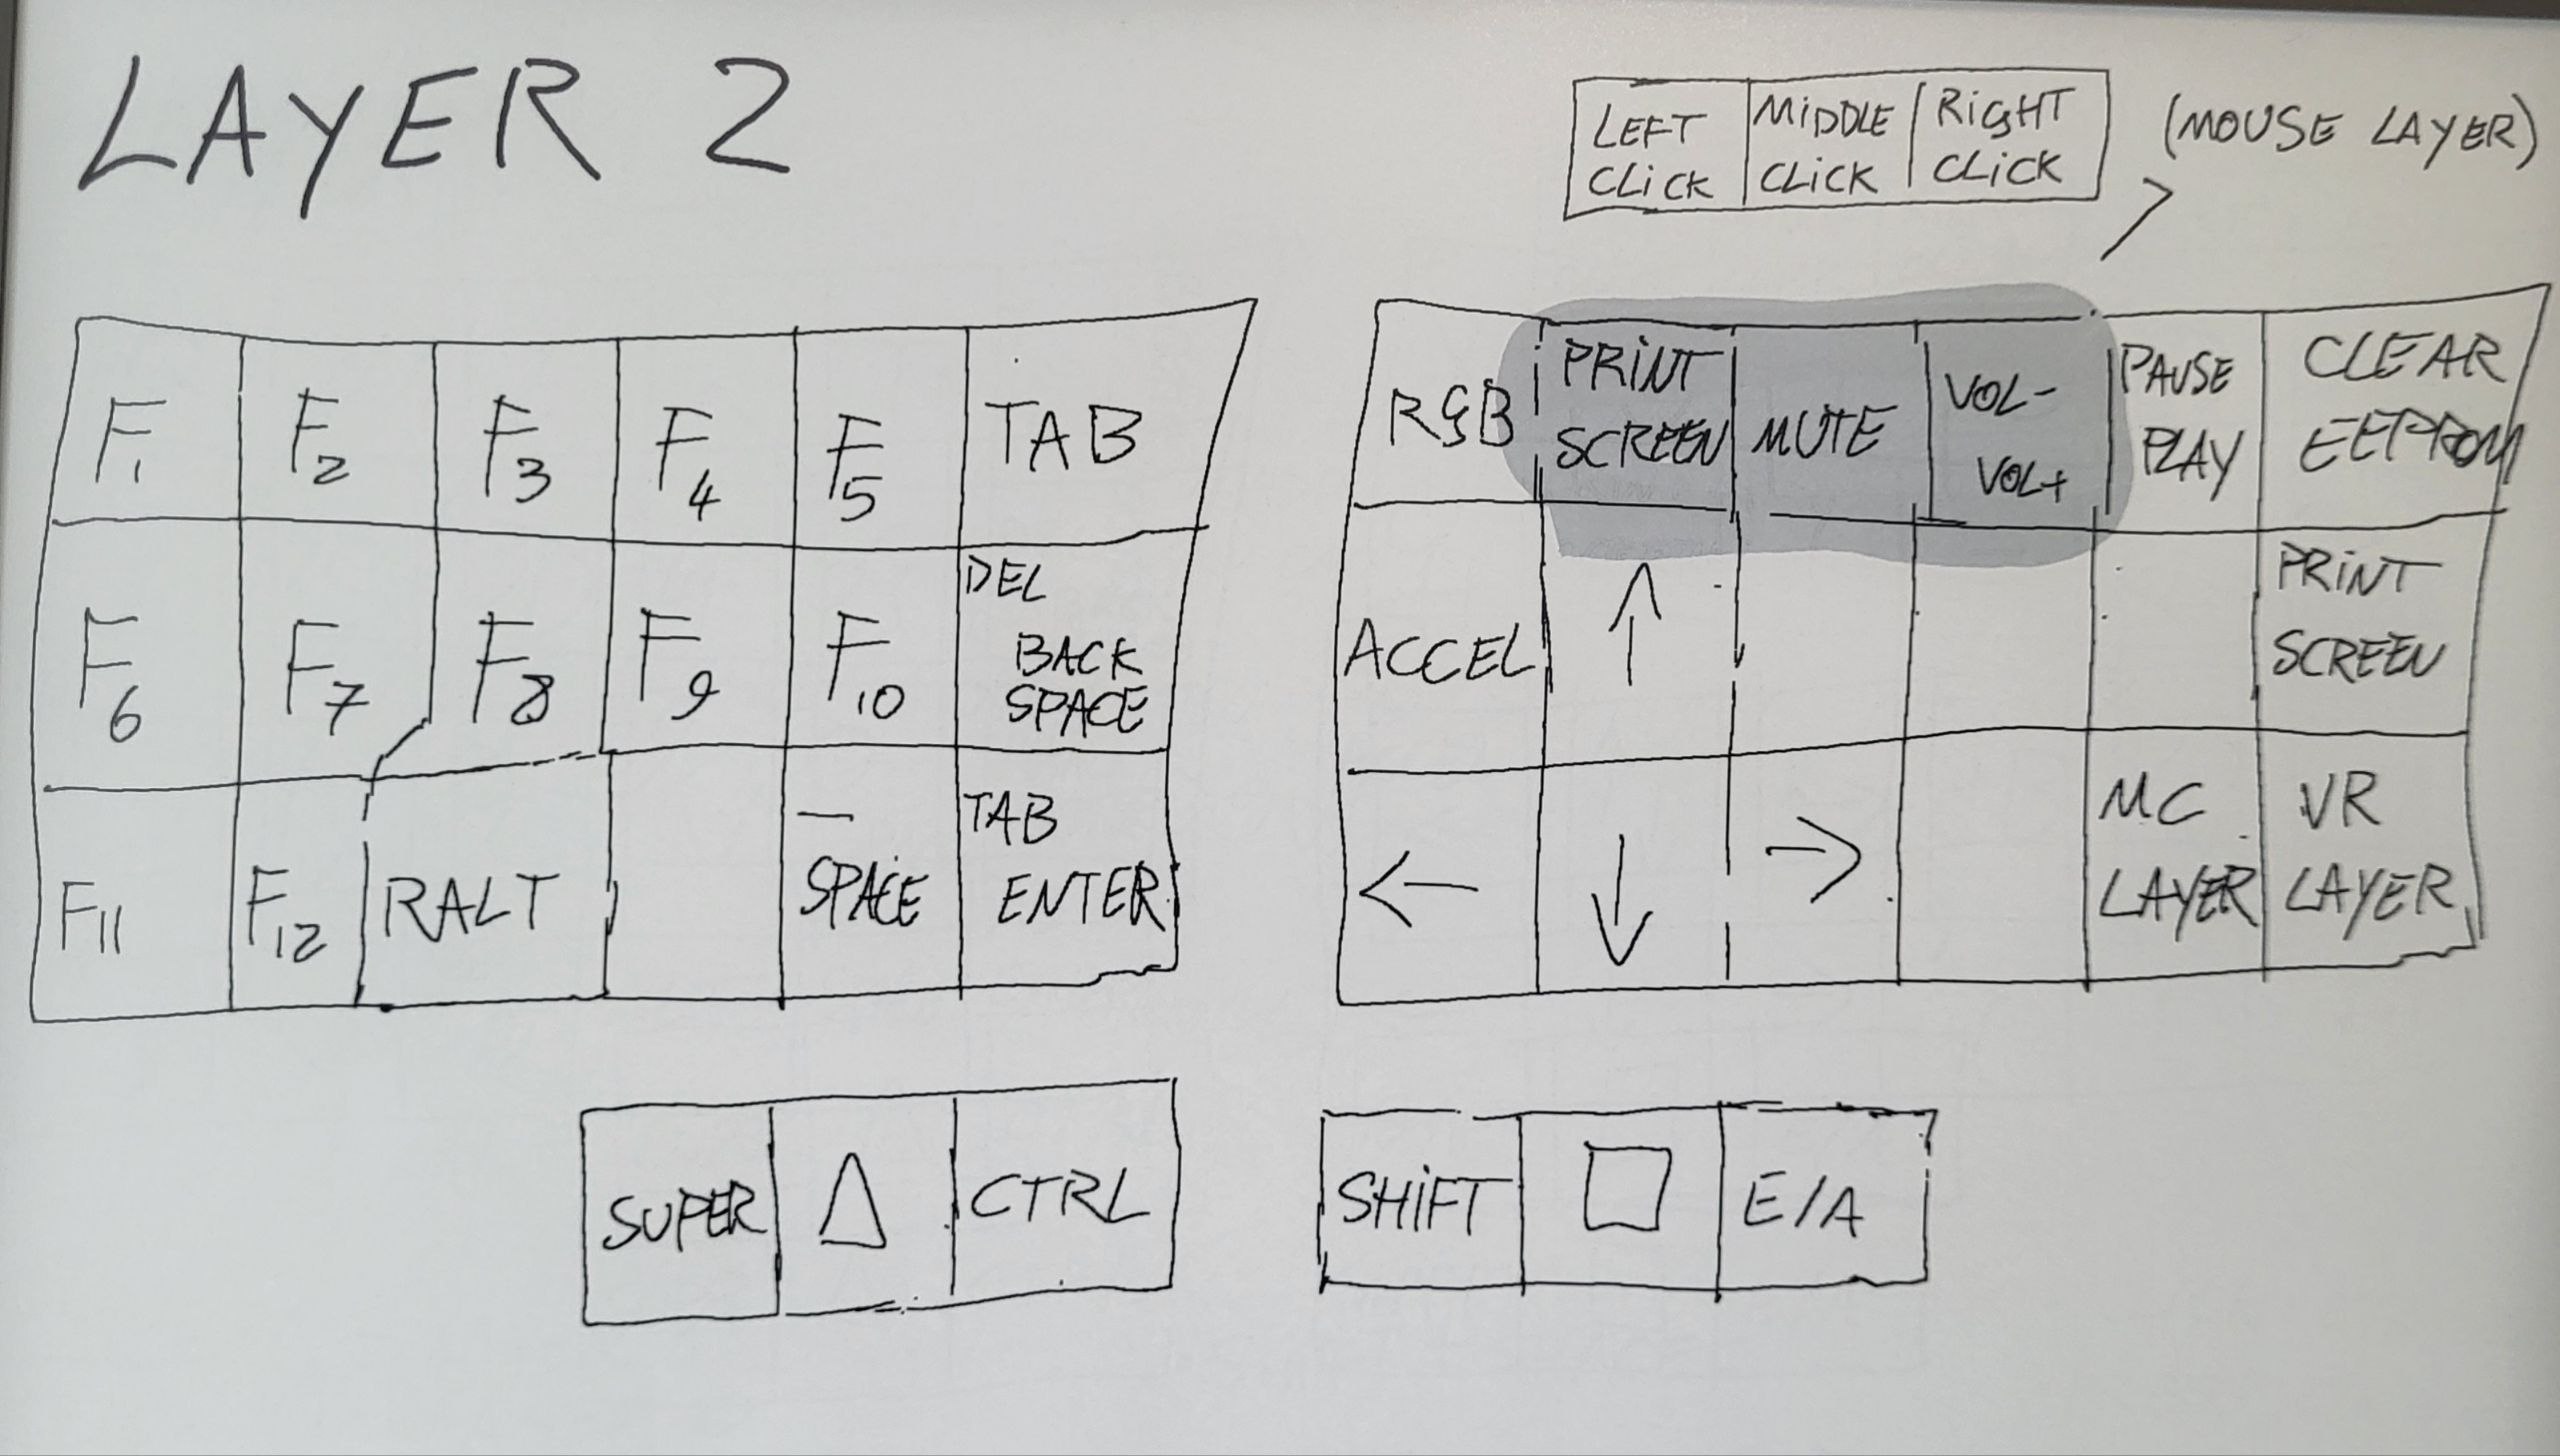 LAYER 2
LEFT CLICK
MIDDLE CLICK
RIGHT CLICK
(MOUSE LAYER)
F1
F2
F3
F4
F5
TAB
F6
F7
F8
F9
F10
DEL
BACK
SPACE
F11
F12
RALT
—
SPACE
TAB
ENTER
RGB
PRINT
SCREEN
MUTE
VOL-
VOL+
PAUSE
PLAY
CLEAR
EEPROM
ACCEL
↑
PRINT
SCREEN
←
↓
→
MC
LAYER
VR
LAYER
SUPER
△
CTRL
SHIFT
□
E/A